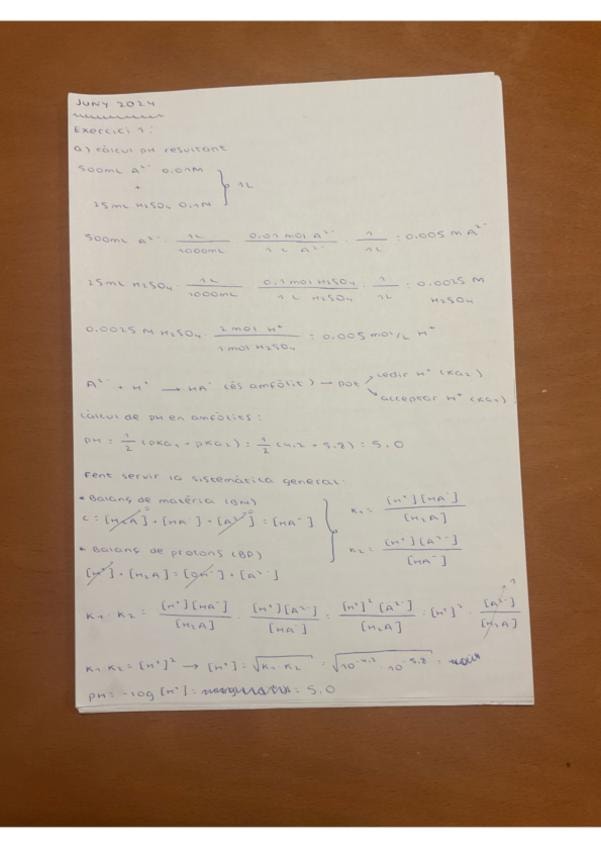 JUNY 2024
Exercici 1:
a) càlcul pH resultant
500mL A²⁻ 0.01M
+
25mL H₂SO₄ 0.1M } 1L
500mL A²⁻ · 1L/1000mL · 0.01 mol A²⁻/1L A²⁻ · 1/1L = 0.005 M A²⁻
25mL H₂SO₄ · 1L/1000mL · 0.1 mol H₂SO₄/1L H₂SO₄ · 1/1L = 0.0025 M H₂SO₄
0.0025 M H₂SO₄ · 2 mol H⁺/1 mol H₂SO₄ = 0.005 mol/L H⁺
A²⁻ + H⁺ → HA⁻ (és amfòlit) → pot cedir H⁺ (Ka₂)
acceptar H⁺ (Ka₁)
càlcul de pH en amfòlits:
pH = 1/2 (pKa₁ + pKa₂) = 1/2 (4.2 + 5.8) = 5.0
Fent servir la sistemàtica general:
* Balanç de matèria (BM)
c = [H₂A] + [HA⁻] + [A²⁻] = [HA⁻]
* Balanç de protons (BP)
[H⁺] + [H₂A] = [OH⁻] + [A²⁻]
K₁ = [H⁺][HA⁻]/[H₂A]
K₂ = [H⁺][A²⁻]/[HA⁻]
K₁ · K₂ = [H⁺][HA⁻]/[H₂A] · [H⁺][A²⁻]/[HA⁻] = [H⁺]²[A²⁻]/[H₂A] = [H⁺]² · [A²⁻]/[H₂A]
K₁ · K₂ = [H⁺]² → [H⁺] = √K₁ · K₂ = √10⁻⁴·² · 10⁻⁵·⁸ =
pH = -log [H⁺] = 5.0